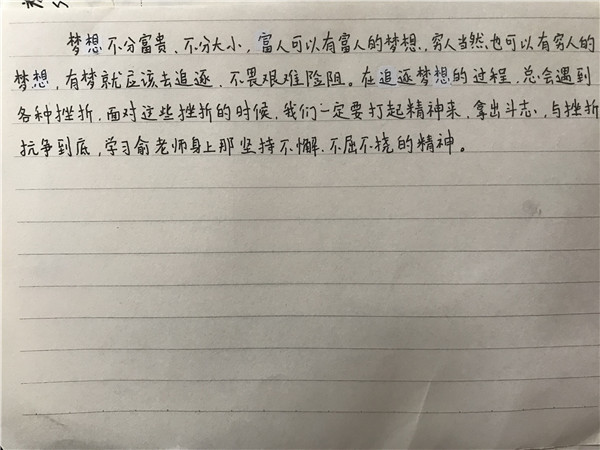 梦想不分富贵、不分大小，富人可以有富人的梦想，穷人当然也可以有穷人的
梦想，有梦就应该去追逐，不畏艰难险阻。在追逐梦想的过程，总会遇到
各种挫折，面对这些挫折的时候，我们一定要打起精神来，拿出斗志，与挫折
抗争到底，学习俞老师身上那坚持不懈、不屈不挠的精神。